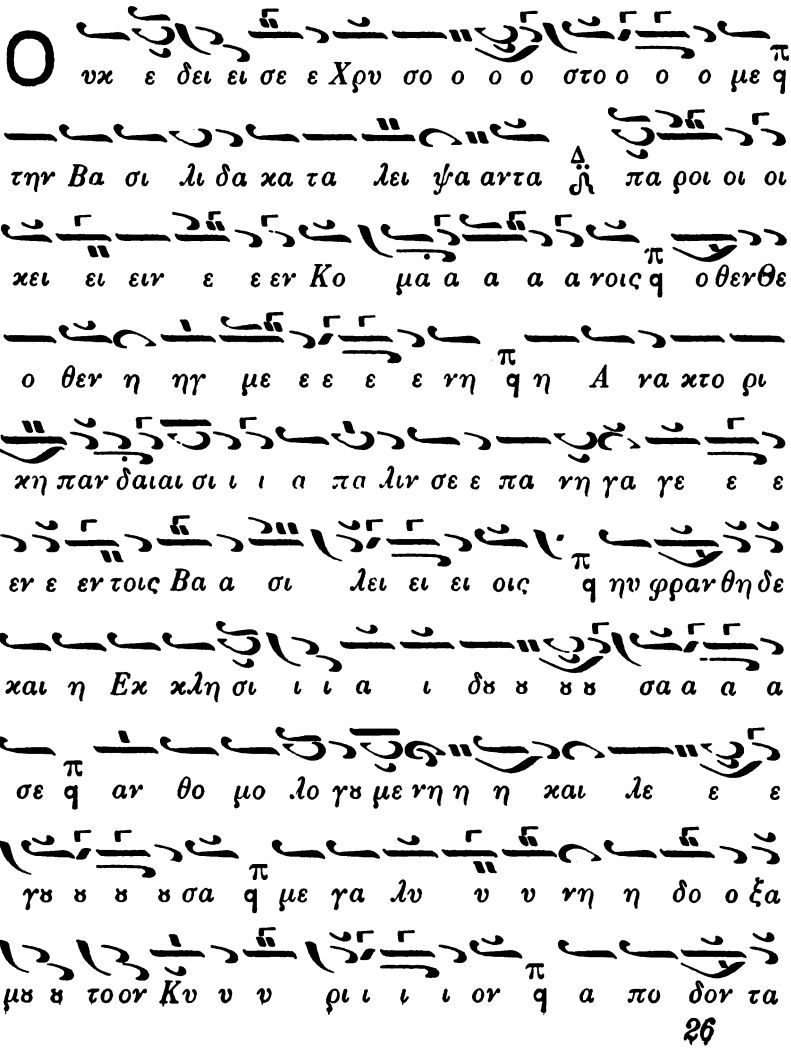 Ο υκ ε δει ει σε ε Χρυ σο ο ο ο στο ο ο ο με π q
την Βα σι λι δα κα τα λει ψα αντα Δ πα ροι οι οι
κει ει ειν ε ε εν Κο μα α α α α νοις π q ο θεν Θε
ο θεν η ηγ με ε ε ε ε νη π q η Α να κτο ρι
κη παν δαιαι σι ι ι α πα λιν σε ε πα νη γα γε ε ε
εν ε εν τοις Βα α σι λει ει ει οις π q ηυ φραν θη δε
και η Εκ κλη σι ι ι α ι δȣ ȣ ȣ ȣ σα α α α
σε π q αν θο μο λο γȣ με νη η η και λε ε ε
γȣ ȣ ȣ ȣ σα π q με γα λυ υ υ νη η δο ο ξα
μȣ ȣ το ον Κυ υ υ ρι ι ι ι ον π q α πο δον τα
26